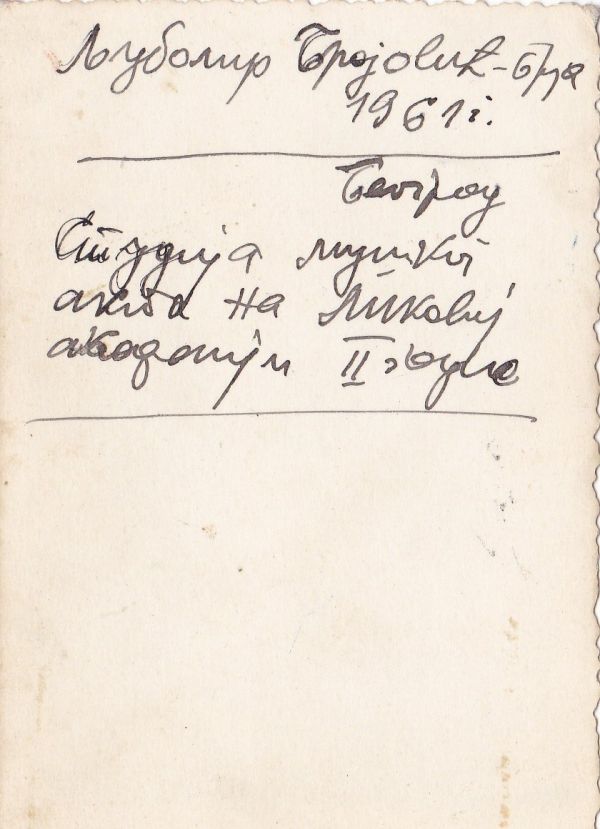 Љубомир Бројовић - Бјуа
1961 г.
Београд
Студија мушког
акта на Ликовној
академији II године